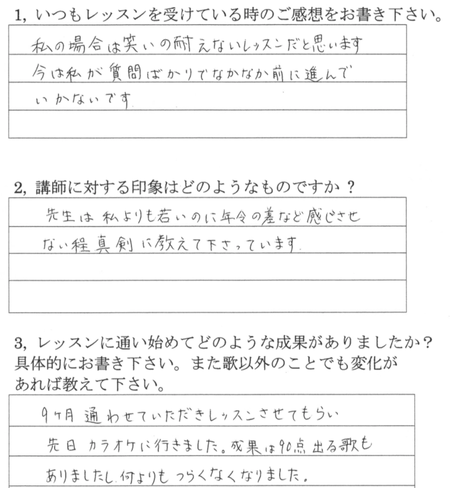 1, いつもレッスンを受けている時のご感想をお書き下さい。
私の場合は笑いの耐えないレッスンだと思います
今は私が質問ばかりでなかなか前に進んで
いかないです
2, 講師に対する印象はどのようなものですか?
先生は私よりも若いのに年令の差など感じさせ
ない程真剣に教えて下さっています.
3, レッスンに通い始めてどのような成果がありましたか?
具体的にお書き下さい。また歌以外のことでも変化が
あれば教えて下さい。
9ヶ月通わせていただきレッスンさせてもらい
先日カラオケに行きました。成果は90点出る歌も
ありましたし何よりもつらくなくなりました.